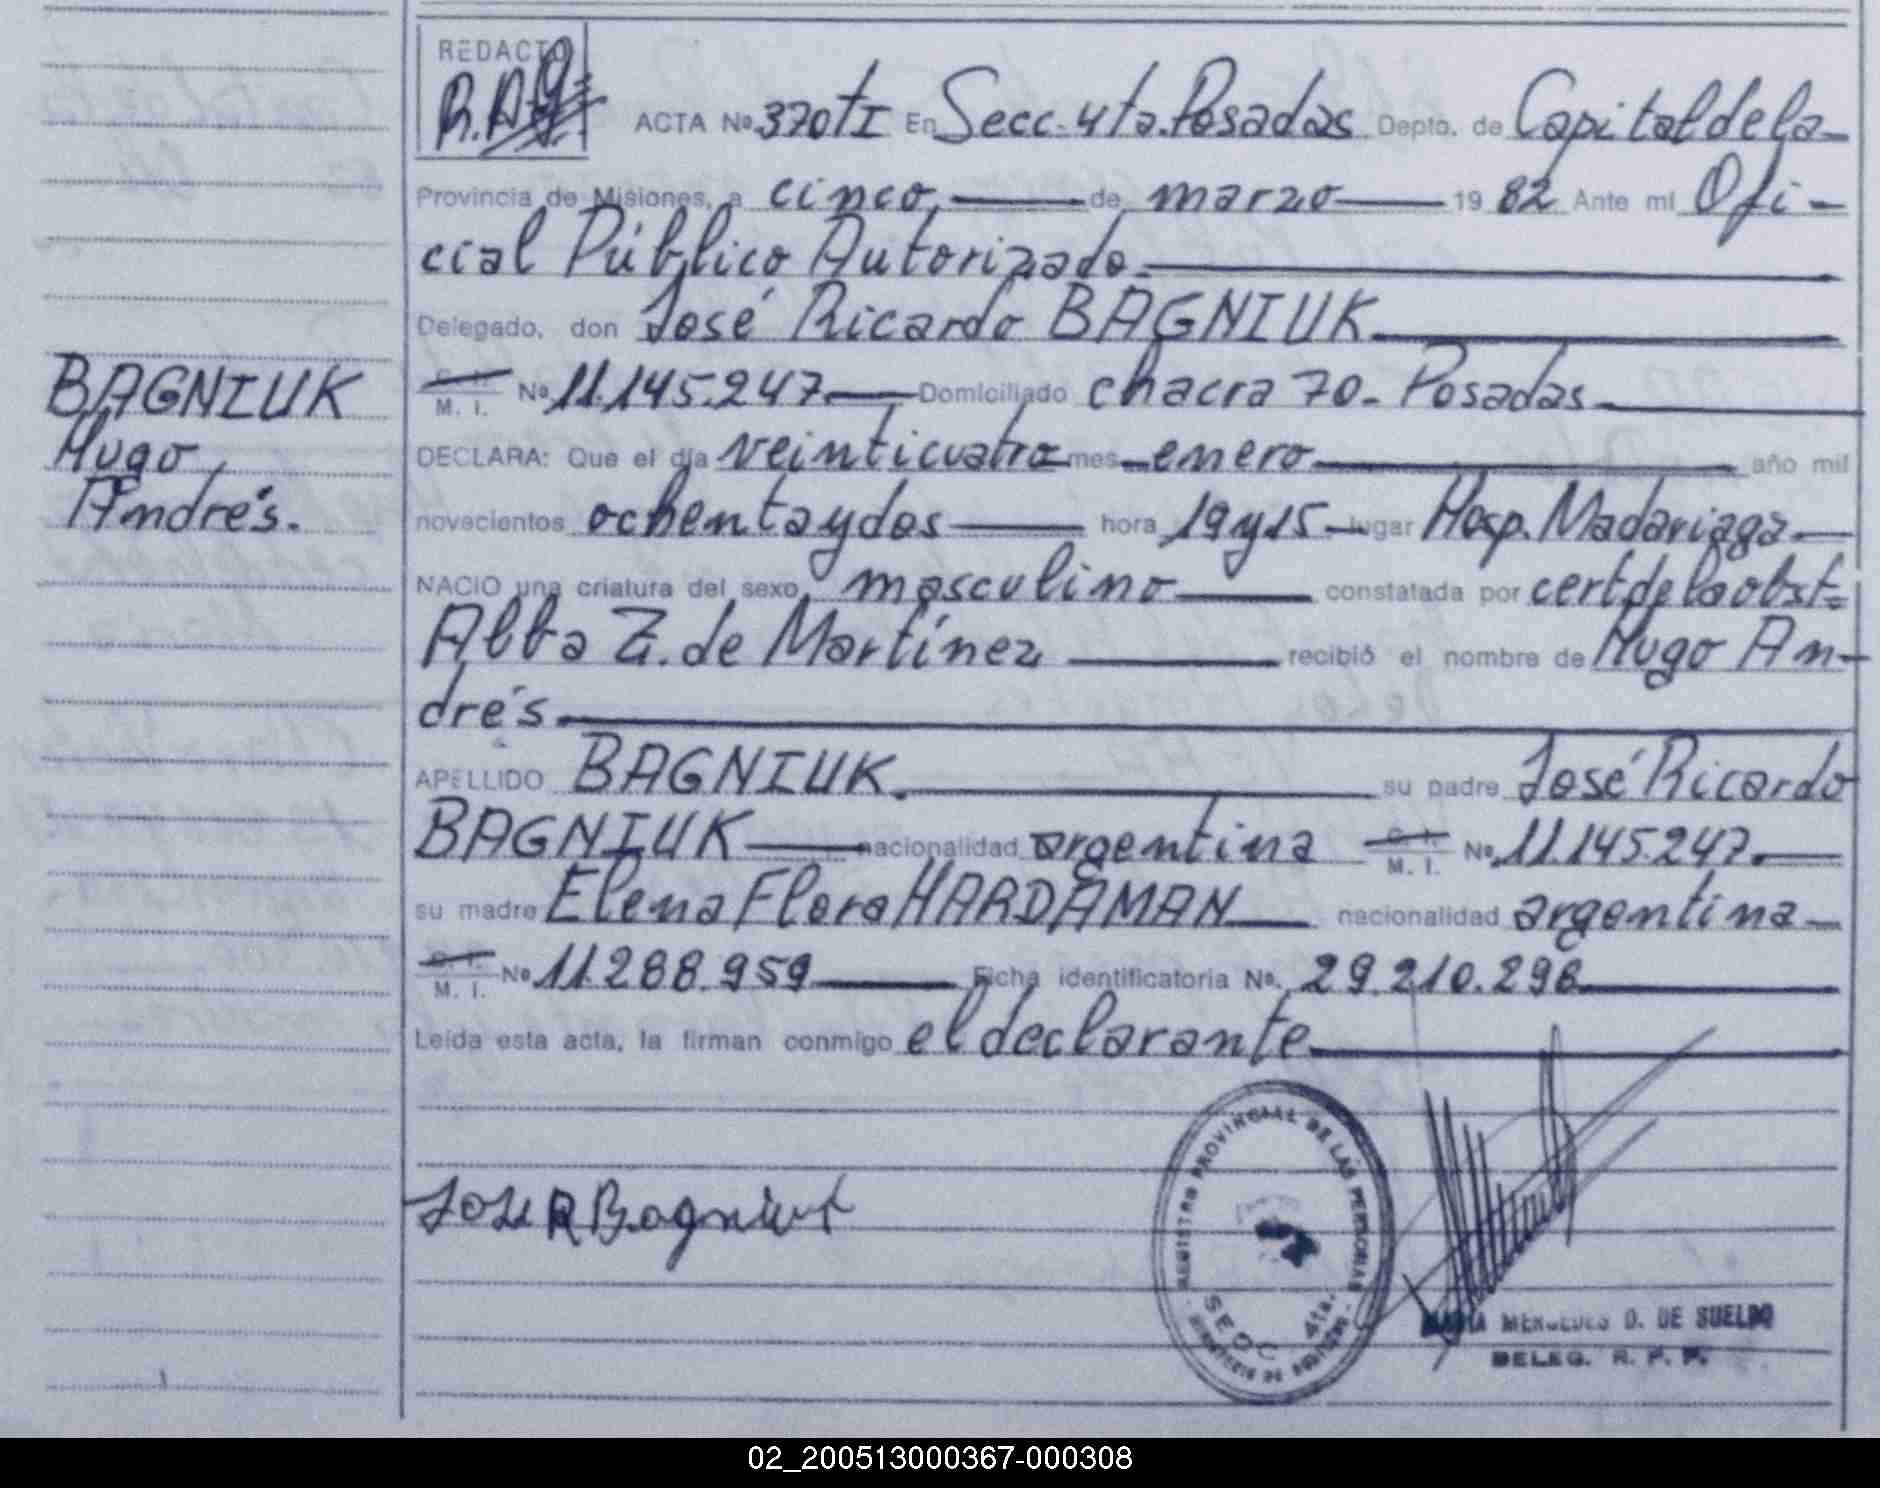 REDACTO
R.A.G
ACTA No 370 tI En Secc. 4ta. Posadas Depto. de Capital de la
Provincia de Misiones, a cinco de marzo 1982 Ante mi Ofi-
cial Público Autorizado.
Delegado, don José Ricardo BAGNIUK
BAGNIUK
Hugo
Andrés.
C. I.
M. I. No 11.145.247 Domiciliado chacra 70- Posadas
DECLARA: Que el día veinticuatro mes enero año mil
novecientos ochenta y dos hora 19 y 15 lugar Hosp. Madariaga
NACIO una criatura del sexo masculino constatada por cert de la obst=
Alba Z. de Martínez recibió el nombre de Hugo An-
drés
APELLIDO BAGNIUK su padre José Ricardo
BAGNIUK nacionalidad argentina C. I. M. I. No 11.145.247
su madre Elena Flora HARDAMAN nacionalidad argentina
C. I. M. I. No 11.288.959 Ficha identificatoria No. 29.210.298
Leída esta acta, la firman conmigo el declarante
REGISTRO PROVINCIAL DE LAS PERSONAS
SECC 4ta.
José R Bagniuk
MARIA MERCEDES D. DE SUELDO
DELEG. R. P. P.
02_200513000367-000308